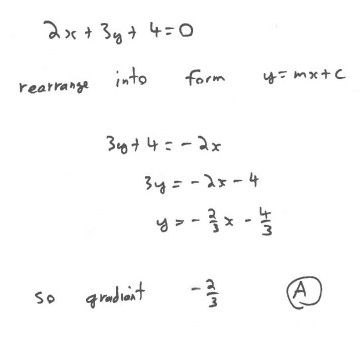 2x + 3y + 4 = 0
rearrange into form y = mx + c
3y + 4 = - 2x
3y = - 2x - 4
y = - 2/3 x - 4/3
so gradient - 2/3 A